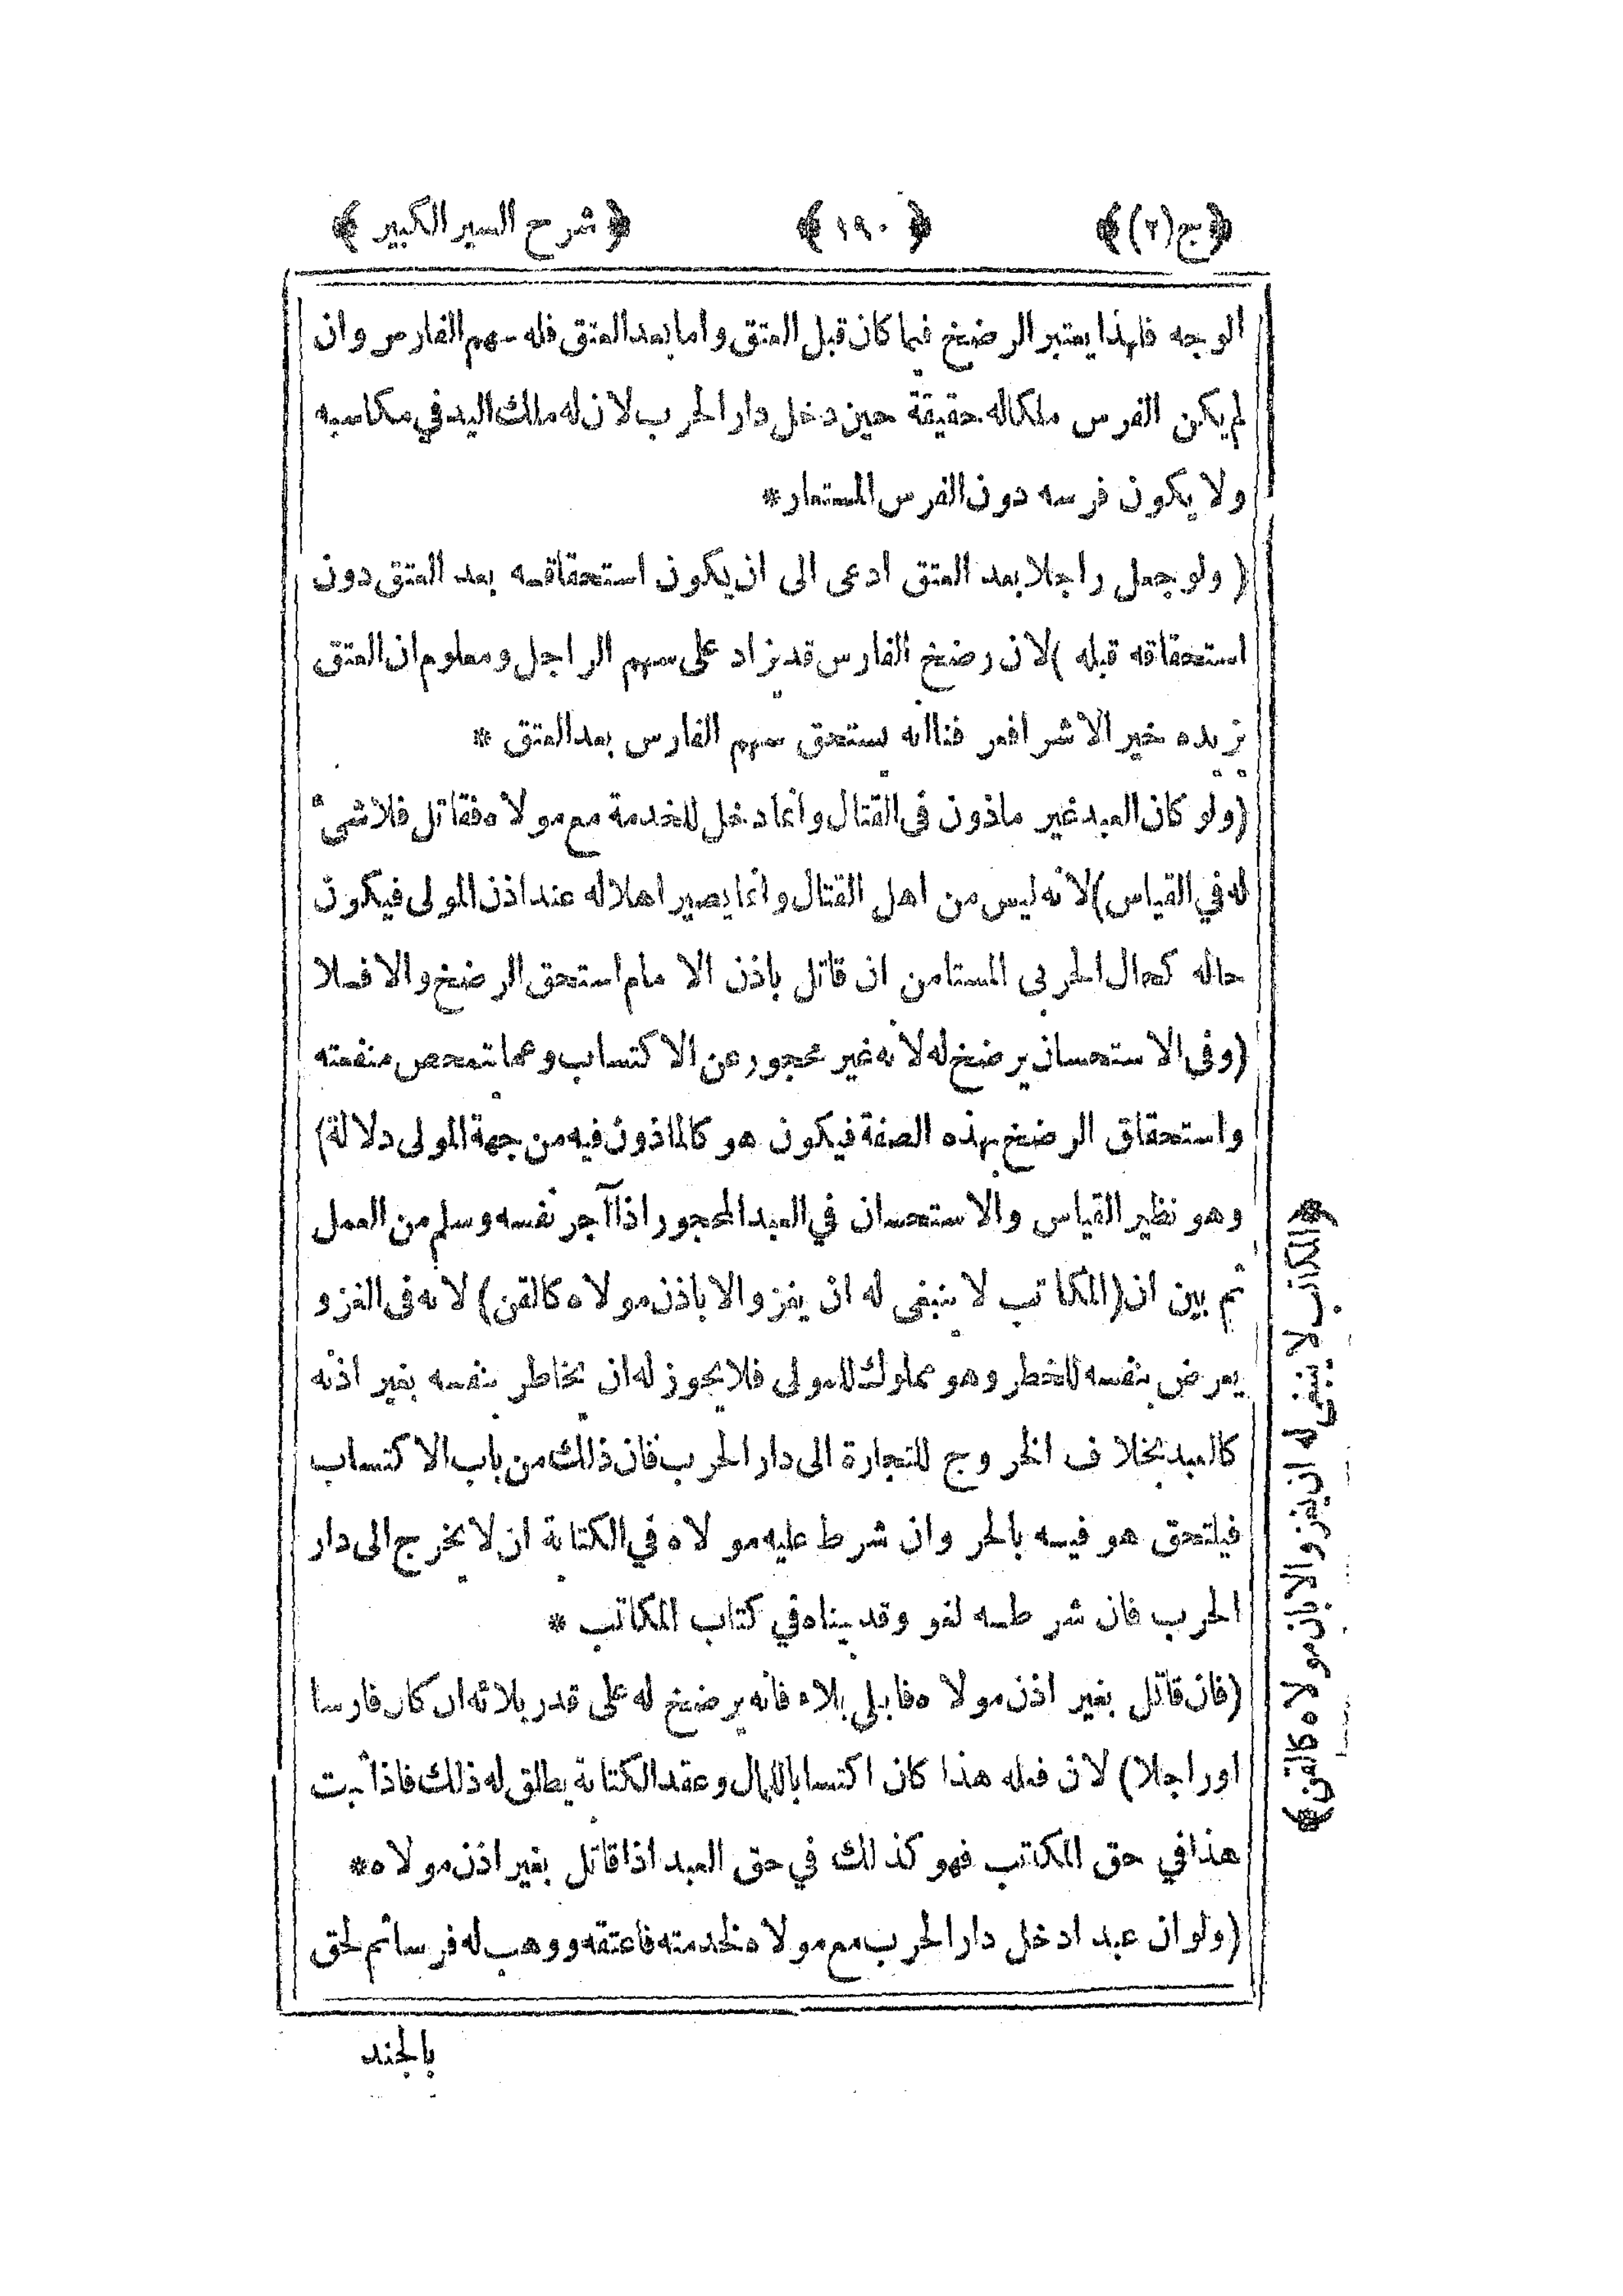 ﴿ج(٢)﴾ ﴿١٩٠﴾ ﴿شرح السير الكبير﴾
الوجه فلهذا يعتبر الرضخ فيما كان قبل العتق واما بعد العتق فله سهم الفارس وان
لم يكن الفرس ملكاله حقيقة حين دخل دار الحرب لان له ملك اليد في مكاسبه
ولا يكون فرسه دون الفرس المستعار*
(ولو جعل راجلا بعد العتق ادعى الى ان يكون استحقاقه بعد العتق دون
استحقاقه قبله) لان رضخ الفارس قد يزاد على سهم الراجل ومعلوم ان العتق
يزيده خيرا لا شرا فعر فنا انه يستحق سهم الفارس بعد العتق *
(ولو كان العبد غير ماذون فى القتال وانما دخل للخدمة مع مولاه فقاتل فلا شئ
له في القياس) لانه ليس من اهل القتال وانما يصير اهلا له عند اذن المولى فيكون
حاله كحال الحربى المستامن ان قاتل باذن الامام استحق الرضخ والا فلا
(وفى الاستحسان يرضخ له لانه غير محجور عن الاكتساب وعما تمحض منفعته
واستحقاق الرضخ بهذه الصفة فيكون هو كالماذون فيه من جهة المولى دلالة)
وهو نظير القياس والاستحسان في العبد المحجور اذا آجر نفسه وسلم من العمل
ثم بين ان (المكاتب لا ينبغى له ان يغزو الا باذن مولاه كالقن) لانه فى الغزو
يعرض نفسه للخطر وهو مملوك للمولى فلا يجوز له ان يخاطر بنفسه بغير اذنه
كالعبد بخلاف الخروج للتجارة الى دار الحرب فان ذلك من باب الاكتساب
فيلتحق هو فيه بالحر وان شرط عليه مولاه في الكتابة ان لا يخرج الى دار
الحرب فان شرطه لغو وقد بيناه في كتاب المكاتب *
(فان قاتل بغير اذن مولاه فابلى بلاء فانه يرضخ له على قدر بلائه ان كان فارسا
او راجلا) لان فعله هذا كان اكتسابا للمال وعقد الكتابة يطلق له ذلك فاذا ثبت
هذا في حق المكاتب فهو كذلك في حق العبد اذا قاتل بغير اذن مولاه*
(ولو ان عبدا دخل دار الحرب مع مولاه لخدمته فاعتقه ووهب له فرسا ثم لحق
بالجند
﴿المكاتب لا ينبغى له ان يغزو الا باذن مولاه كالقن﴾